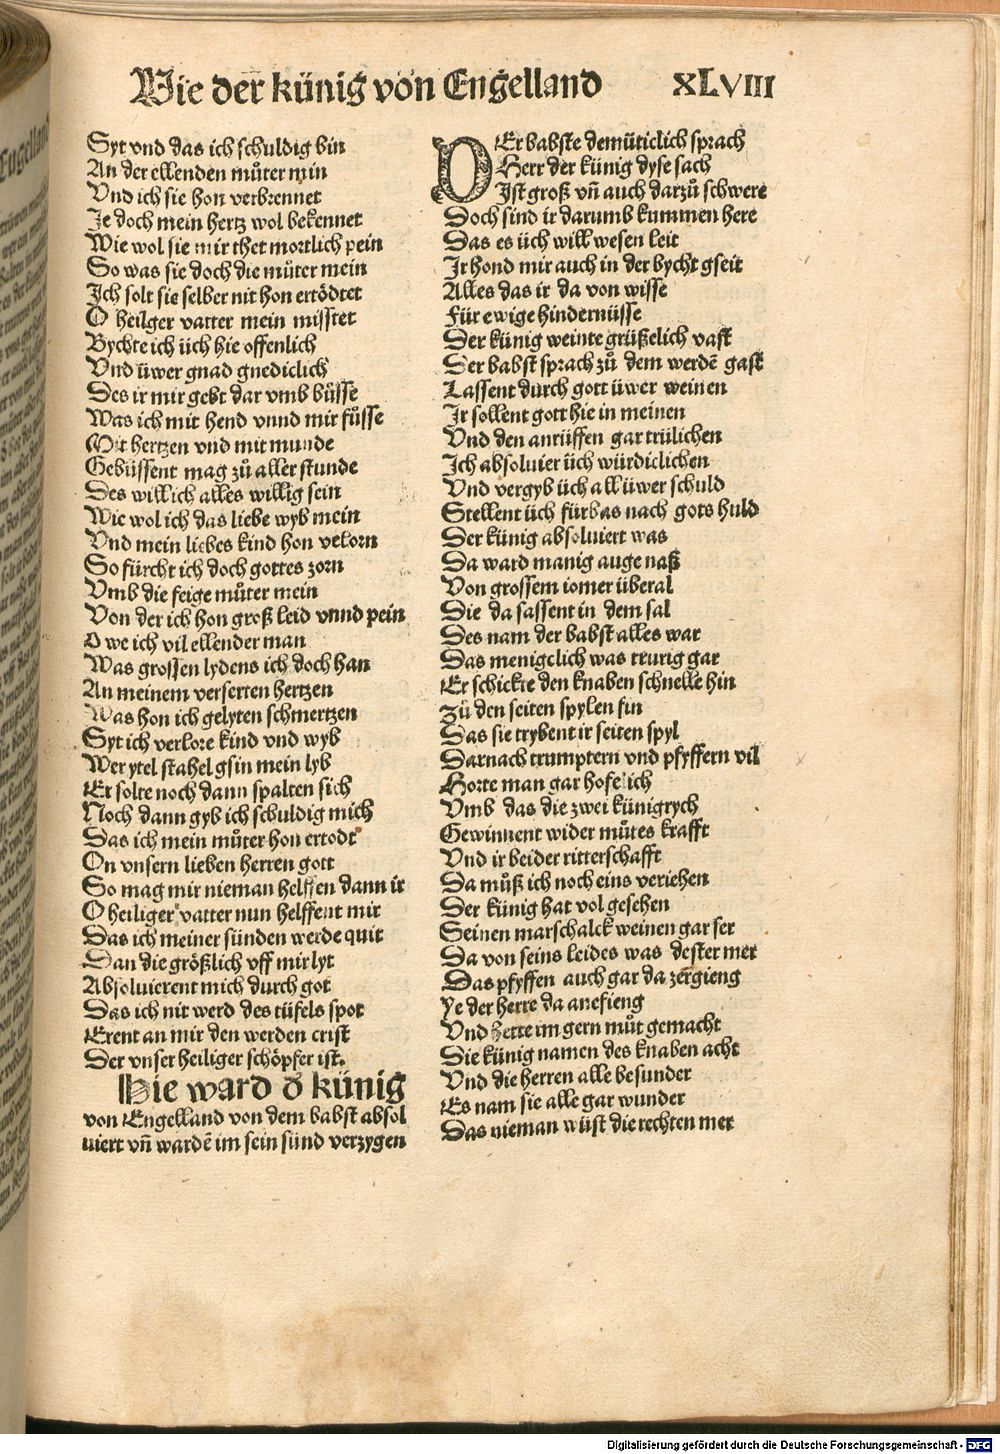 Wie der künig von Engelland XLVIII
Syt vnd das ich schuldig bin
An der ellenden müter min
Vnd ich sie hon verbrennet
Je doch mein hertz wol bekennet
Wie wol sie mir thet mortlich pein
So was sie doch die můter mein
Ich solt sie selber nit hon ertödtet
O heilger vatter mein misstet
Bychte ich üch hie offenlich
Vnd üwer gnad gnediclich
Des ir mir gebt dar vmb bůsse
Was ich mit hend vnnd mit fůsse
Mit hertzen vnd mit munde
Gebüssent mag zů aller stunde
Des will ich alles willig sein
Wie wol ich das liebe wyb mein
Vnd mein liebes kind hon velorn
So fürcht ich doch gottes zorn
Vmb die feige můter mein
Von der ich hon groß leid vnnd pein
O we ich vil ellender man
Was grossen lydens ich doch han
An meinem verserten hertzen
Was hon ich gelyten schmertzen
Syt ich verlore kind vnd wyb
Wer ytel stahel gsin mein lyb
Er solte noch dann spalten sich
Noch dann gyb ich schuldig mich
Das ich mein můter hon ertodt
On vnsern lieben herren gott
So mag mir nieman helffen dann ir
O heiliger vatter nun helffent mir
Das ich meiner sünden werde quit
Dan die größlich vff mir lyt
Absoluierent mich durch got
Das ich nit werd des tüfels spot
Erent an mir den werden crist
Der vnser heiliger schöpfer ist.
Hie ward d̕ künig
von Engelland von dem babst absol
uiert vn̄ wardē im sein sünd verzygen
DEr babste demüticlich sprach
Herr der künig dyse sach
Ist groß vn̄ auch darzů schwere
Doch sind ir darumb kummen here
Das es üch will wesen leit
Ir hond mir auch in der bycht gseit
Alles das ir da von wisse
Für ewige hindernüsse
Der künig weinte grüßelich vast
Der babst sprach zů dem werdē gast
Lassent durch gott üwer weinen
Ir sollent gott hie in meinen
Vnd den anrüffen gar trülichen
Ich absoluier üch würdiclichen
Vnd vergyb üch all üwer schuld
Stellent üch fürbas nach gots huld
Der künig absoluiert was
Da ward manig auge naß
Von grossem iomer überal
Die da sassent in dem sal
Des nam der babst alles war
Das menigclich was trurig gar
Er schickte den knaben schnelle hin
Zů den seiten spylen fin
Das sie trybent ir seiten spyl
Darnach trumptern vnd pfyffern vil
Horte man gar hofelich
Vmb das die zwei künigrych
Gewinnent wider můtes krafft
Vnd ir beider ritterschafft
Da můß ich noch eins veriehen
Der künig hat vol gesehen
Seinen marschalck weinen gar ser
Da von seins leides was dester mer
Das pfyffen auch gar da zergieng
Ye der herre da anefieng
Vnd hette im gern můt gemacht
Die künig namen des knaben acht
Vnd die herren alle besunder
Es nam sie alle gar wunder
Das nieman wüst die rechten mer
Digitalisierung gefördert durch die Deutsche Forschungsgemeinschaft - DFG